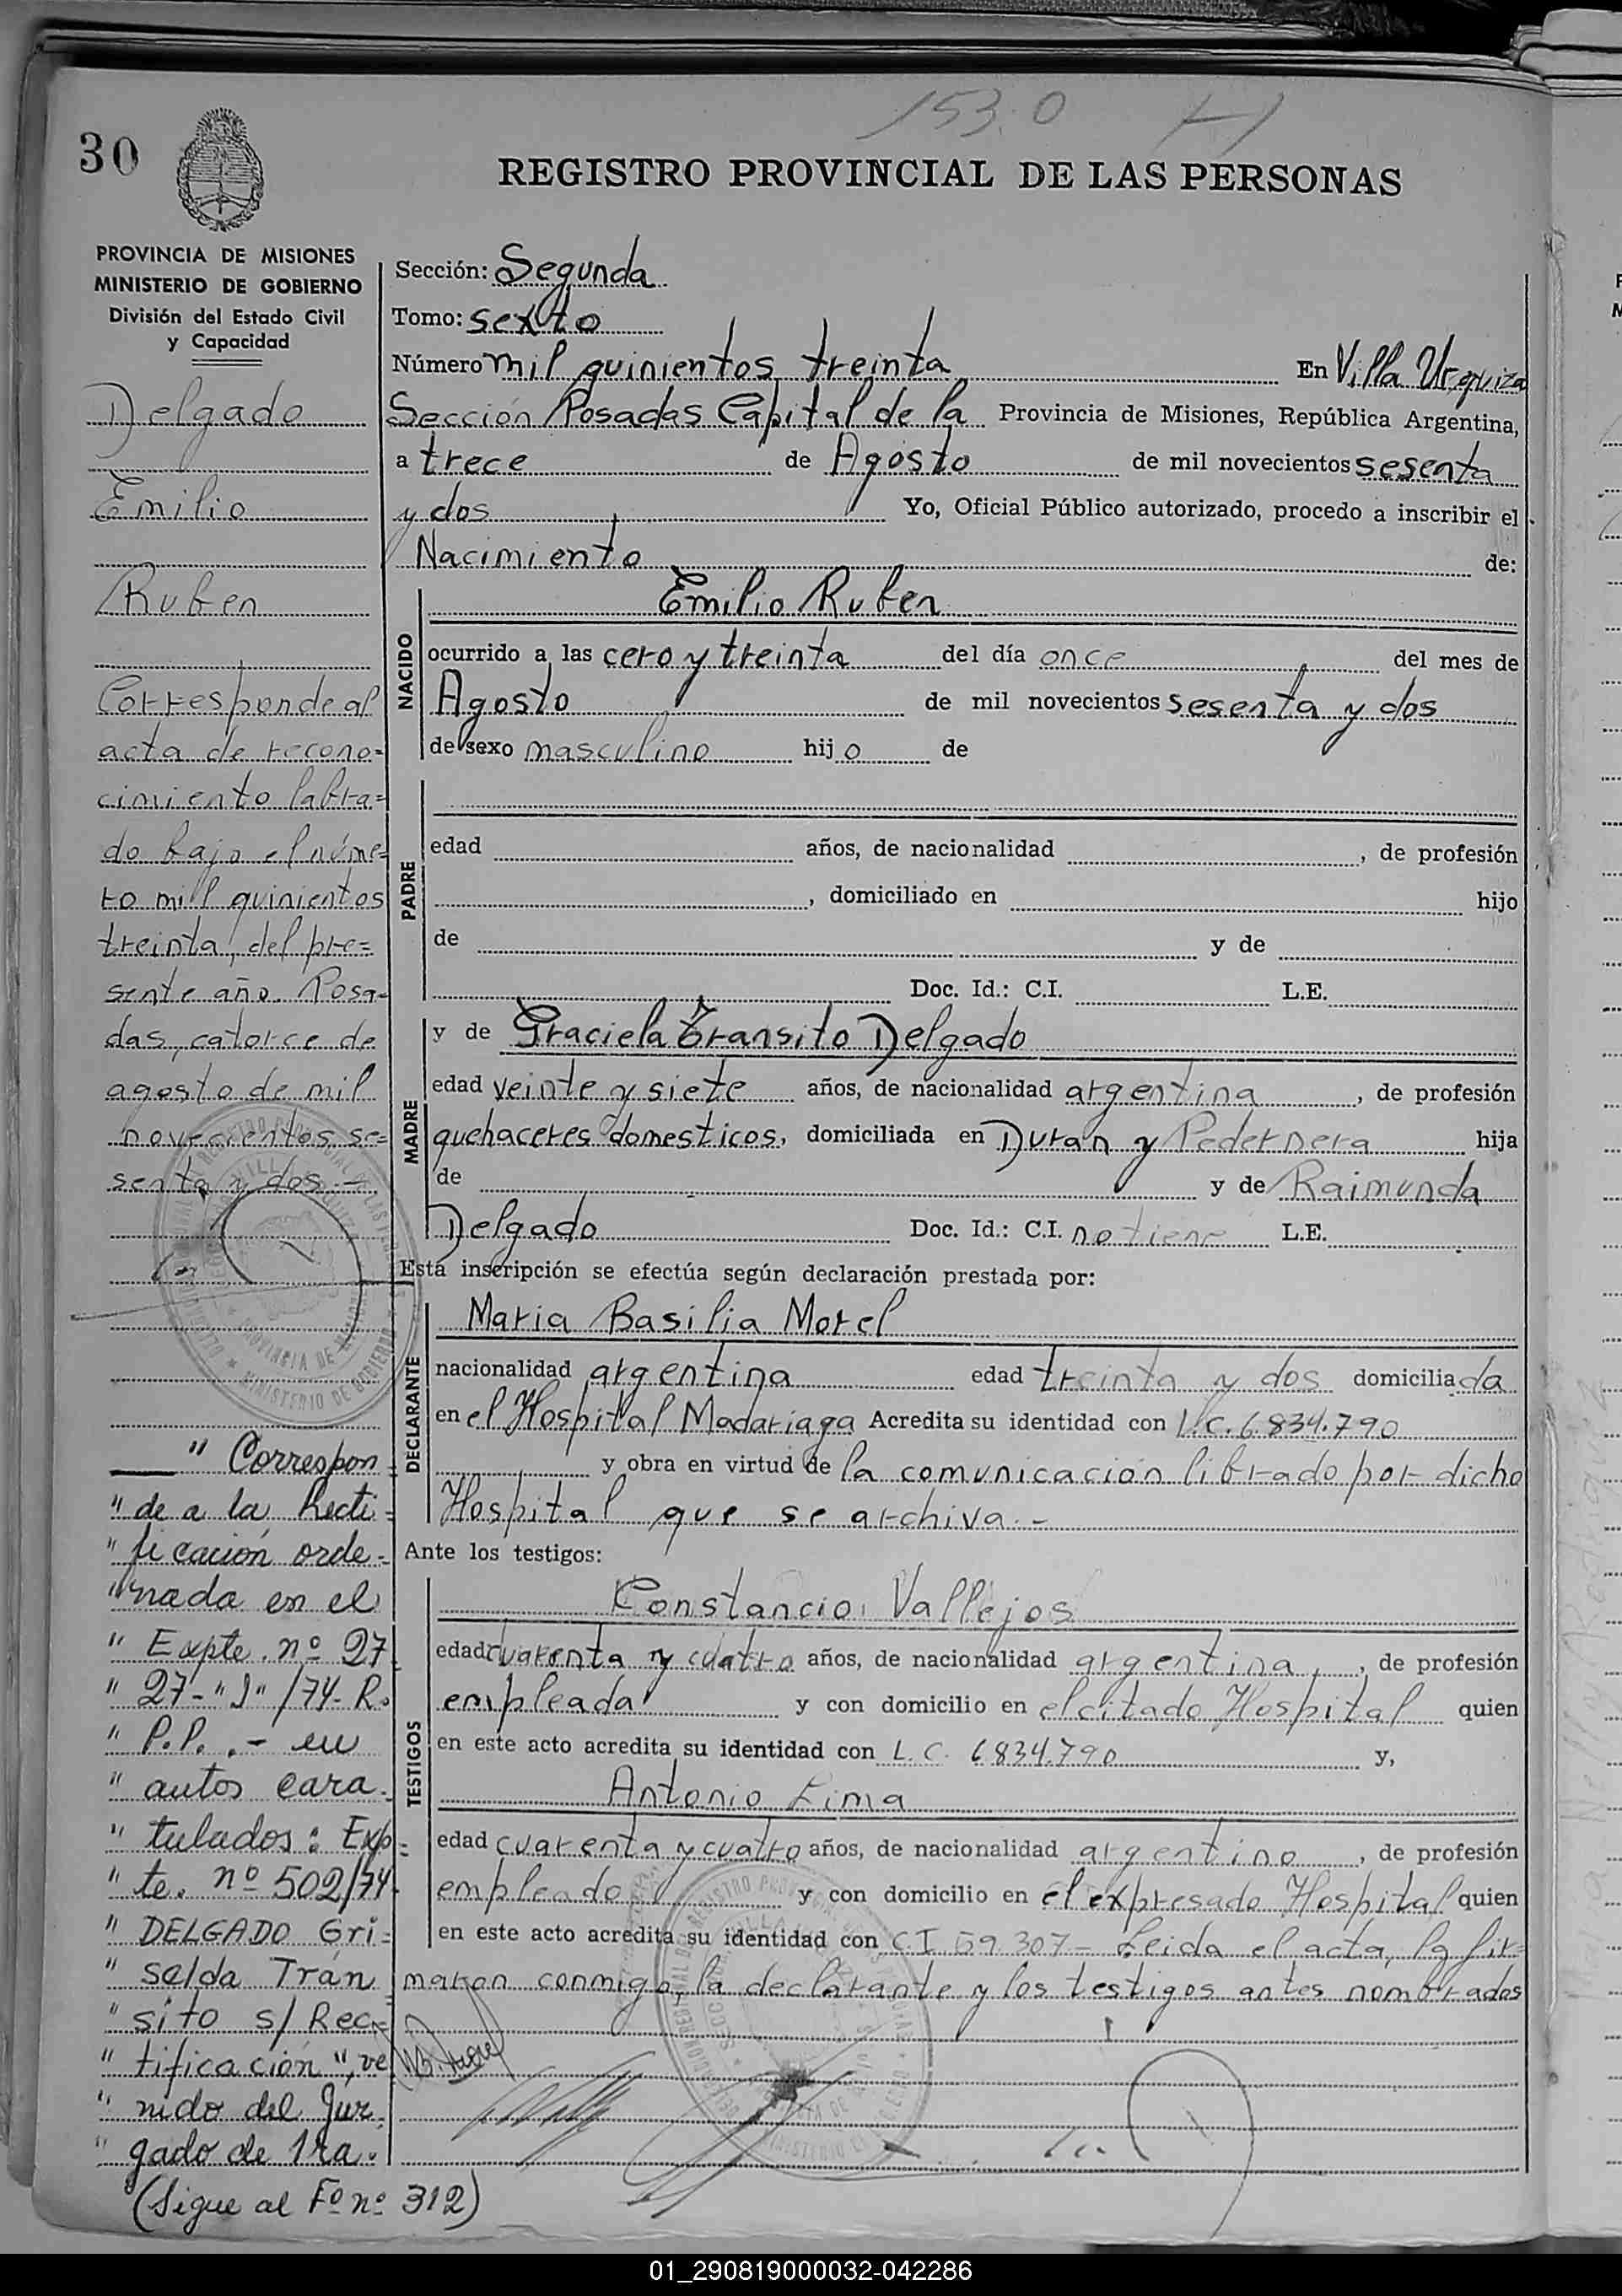 153.0
30
REGISTRO PROVINCIAL DE LAS PERSONAS
PROVINCIA DE MISIONES
MINISTERIO DE GOBIERNO
División del Estado Civil
y Capacidad
Delgado
Emilio
Ruben
Corresponde al
acta de recono=
cimiento labra=
do bajo el núme=
ro mil quinientos
treinta, del pre=
sente año. Posa=
das, catorce de
agosto de mil
novecientos se=
senta y dos.-
" Correspon
" de a la Recti=
" ficación orde=
" nada en el
" Expte. nº 27
" 27-"J"/74-R.
" P.P. .- en
" autos cara
" tulados: Exp=
" te. nº 502/74
" DELGADO Gri=
" selda Tran
" sito s/ Rec=
" tificación", ve
" nido del Juz
" gado de 1ra.
(Sigue al Fº nº 312)
Sección: Segunda
Tomo: sexto
Número mil quinientos treinta En Villa Urquiza
Sección Posadas Capital de la Provincia de Misiones, República Argentina,
a trece de Agosto de mil novecientos sesenta
y dos Yo, Oficial Público autorizado, procedo a inscribir el
Nacimiento de:
NACIDO
Emilio Ruben
ocurrido a las cero y treinta del día once del mes de
Agosto de mil novecientos sesenta y dos
de sexo masculino hijo de
PADRE
edad años, de nacionalidad , de profesión
, domiciliado en hijo
de y de
Doc. Id.: C.I. L.E.
MADRE
y de Graciela Transito Delgado
edad veinte y siete años, de nacionalidad argentina , de profesión
quehaceres domesticos, domiciliada en Duran y Pedernera hija
de y de Raimunda
Delgado Doc. Id.: C.I. no tiene L.E.
Esta inscripción se efectúa según declaración prestada por:
DECLARANTE
Maria Basilia Morel
nacionalidad argentina edad treinta y dos domiciliada
en el Hospital Madariaga Acredita su identidad con L.C. 6.834.790
y obra en virtud de la comunicación librado por dicho
Hospital que se archiva.-
Ante los testigos:
TESTIGOS
Constancia Vallejos
edad cuarenta y cuatro años, de nacionalidad argentina , de profesión
empleada y con domicilio en el citado Hospital quien
en este acto acredita su identidad con L.C. 6834.790 y,
Antonio Lima
edad cuarenta y cuatro años, de nacionalidad argentino , de profesión
empleado y con domicilio en el expresado Hospital quien
en este acto acredita su identidad con C.I 59.307 - Leida el acta, la fir=
maron conmigo, la declarante y los testigos antes nombrados
01_290819000032-042286